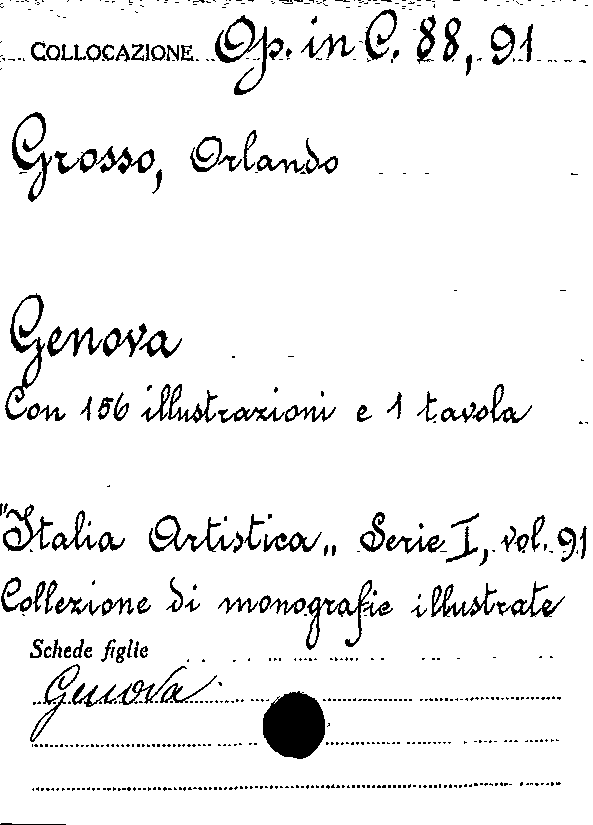 COLLOCAZIONE Op. in C. 88, 91
Grosso, Orlando
Genova
Con 156 illustrazioni e 1 tavola
"Italia Artistica„ Serie I, vol. 91
Collezione di monografie illustrate
Schede figlie
Genova